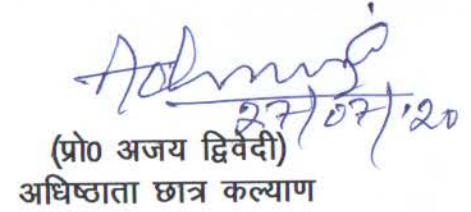 27/07/'20
(प्रो0 अजय द्विवेदी)
अधिष्ठाता छात्र कल्याण